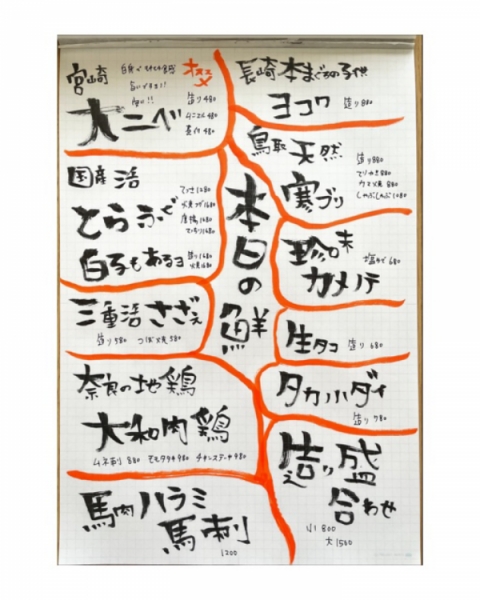 本日の鮮
宮崎
オススメ
大ニベ
造り 480
国産活
とらふぐ
てっさ 1680
唐揚 1680
白子もあるヨ
造り 1680
焼 1680
三重活さざえ
造り 580 つぼ焼 580
奈良の地鶏
大和肉鶏
ムネ刺 880 モモタタキ 980
馬肉ハラミ
馬刺
1200
長崎本まぐろの子供
ヨコワ 造り 880
鳥取天然
寒ブリ
造り 880
てりやき 880
カマ焼 880
しゃぶしゃぶ 1080
珍味
カメノテ
塩ゆで 680
生タコ 造り 680
タカノハダイ
造り 780
造り盛
合わせ
小 800
大 1500